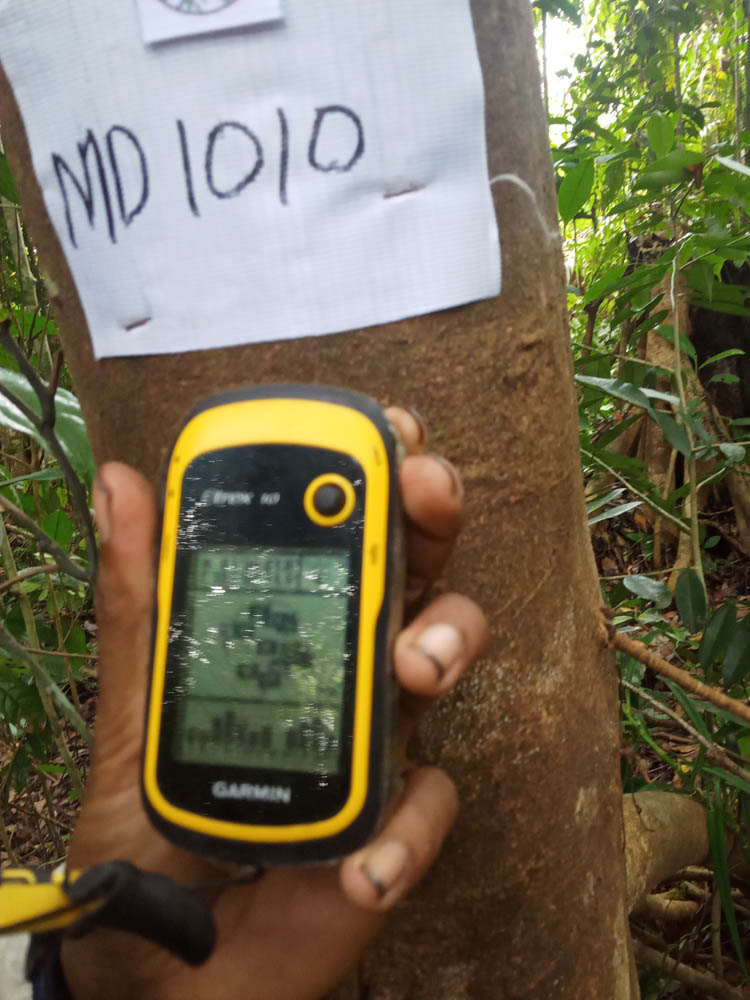 MD1010
eTrex 10
GARMIN